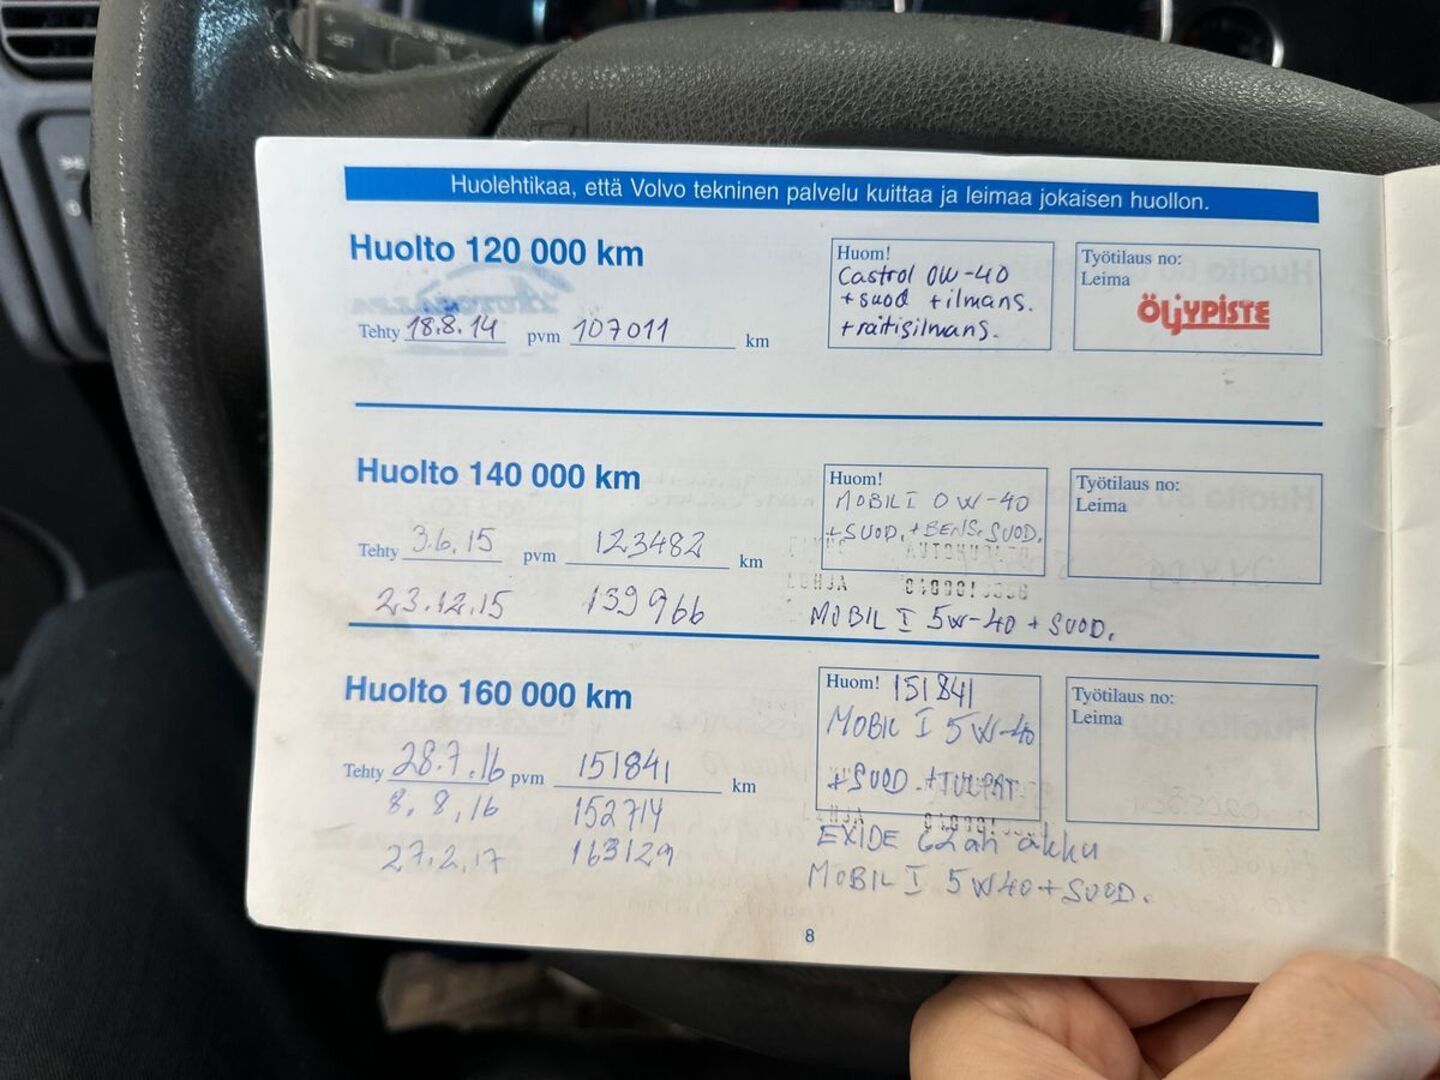 Huolehtikaa, että Volvo tekninen palvelu kuittaa ja leimaa jokaisen huollon.
Huolto 120 000 km
Tehty 18.8.14 pvm 107011 km
Huom!
Castrol 0W-40
+suod +ilmans.
+raitisilmans.
Työtilaus no:
Leima
ÖLJYPISTE
Huolto 140 000 km
Tehty 3.6.15 pvm 123482 km
Huom!
MOBIL I 0W-40
+SUOD.+BENS.SUOD.
Työtilaus no:
Leima
23.12.15 139966 MOBIL I 5W-40 + SUOD.
Huolto 160 000 km
Tehty 28.7.16 pvm 151841 km
Huom! 151841
MOBIL I 5W-40
+SUOD.+TULPAT
Työtilaus no:
Leima
8.8.16 152714 EXIDE 62ah akku
27.2.17 163129 MOBIL I 5W40+SUOD.
8